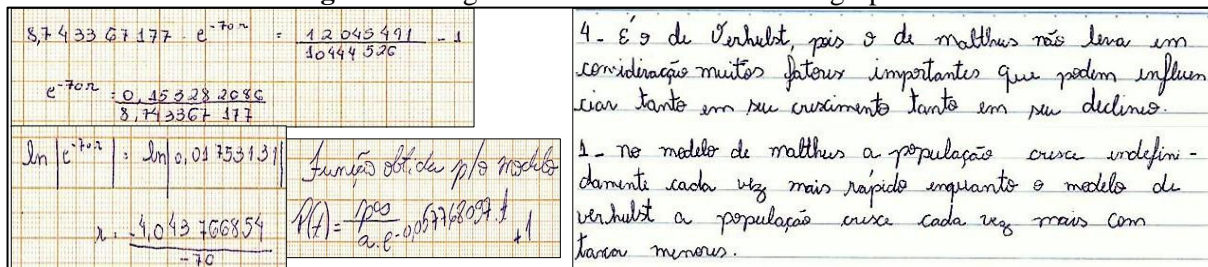 8,743367177 · e^-70r = 12045491 / 10444526 - 1
e^-70r = 0,153282086 / 8,743367177
ln |e^-70r| = ln |0,01753131|
r = -4,043766854 / -70
Função obtida p/o modelo
P(t) = p∞ / a.e^-0,057768097.t + 1
4- É o de Verhulst, pois o de malthus não leva em
consideração muitos fatores importantes que podem influen
ciar tanto em seu crescimento tanto em seu declinio.
1- no modelo de malthus a população cresce indefini-
damente cada vez mais rápido enquanto o modelo de
verhulst a população cresce cada vez mais com
taxa menores.